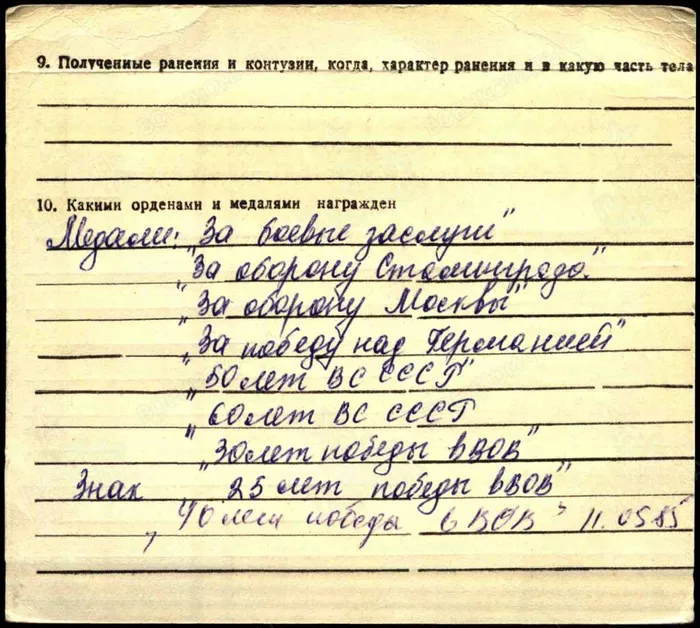 9. Полученные ранения и контузии, когда, характер ранения и в какую часть тела
10. Какими орденами и медалями награжден
Медали: „За боевые заслуги"
„За оборону Сталинграда."
„За оборону Москвы"
„За победу над Германией"
„50 лет ВС СССР"
„60 лет ВС СССР
„30 лет победы в ВОВ"
Знак 25 лет победы в ВОВ"
„40 лет победы в ВОВ" 11.05.85